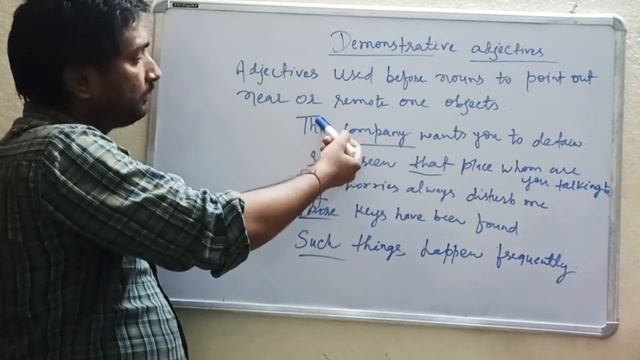 Demonstrative adjectives
Adjectives used before nouns to point out
near or remote one objects.
company wants you to defaw.
seen that place whom are
you talking to
worries always disturb me
Those keys have been found
Such things happen frequently.